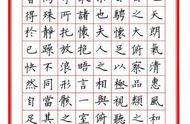 也天朗氣清惠風和
之大俯察品類之盛
騁懷足以極視聽
夫人之相與俯仰
諸懷抱悟言一室
所託放浪形骸之外
殊靜躁不同當其
暫得於己快然自足